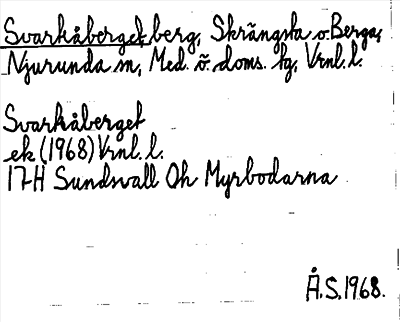 Svarkåberget berg, Skrängsta o. Berga,
Njurunda sn, Med. ö. doms. tg, Vrnl. l.
Svarkåberget
ek (1968) Vrnl. l.
17H Sundsvall Oh Myrbodarna
Å.S. 1968.